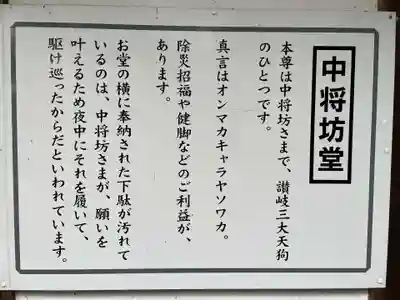 中将坊堂
本尊は中将坊さまで、讃岐三大天狗
のひとつです。
真言はオンマカキャラヤソワカ。
除災招福や健脚などのご利益が、
あります。
お堂の横に奉納された下駄が汚れて
いるのは、中将坊さまが、願いを
叶えるため夜中にそれを履いて、
駆け巡ったからだといわれています。